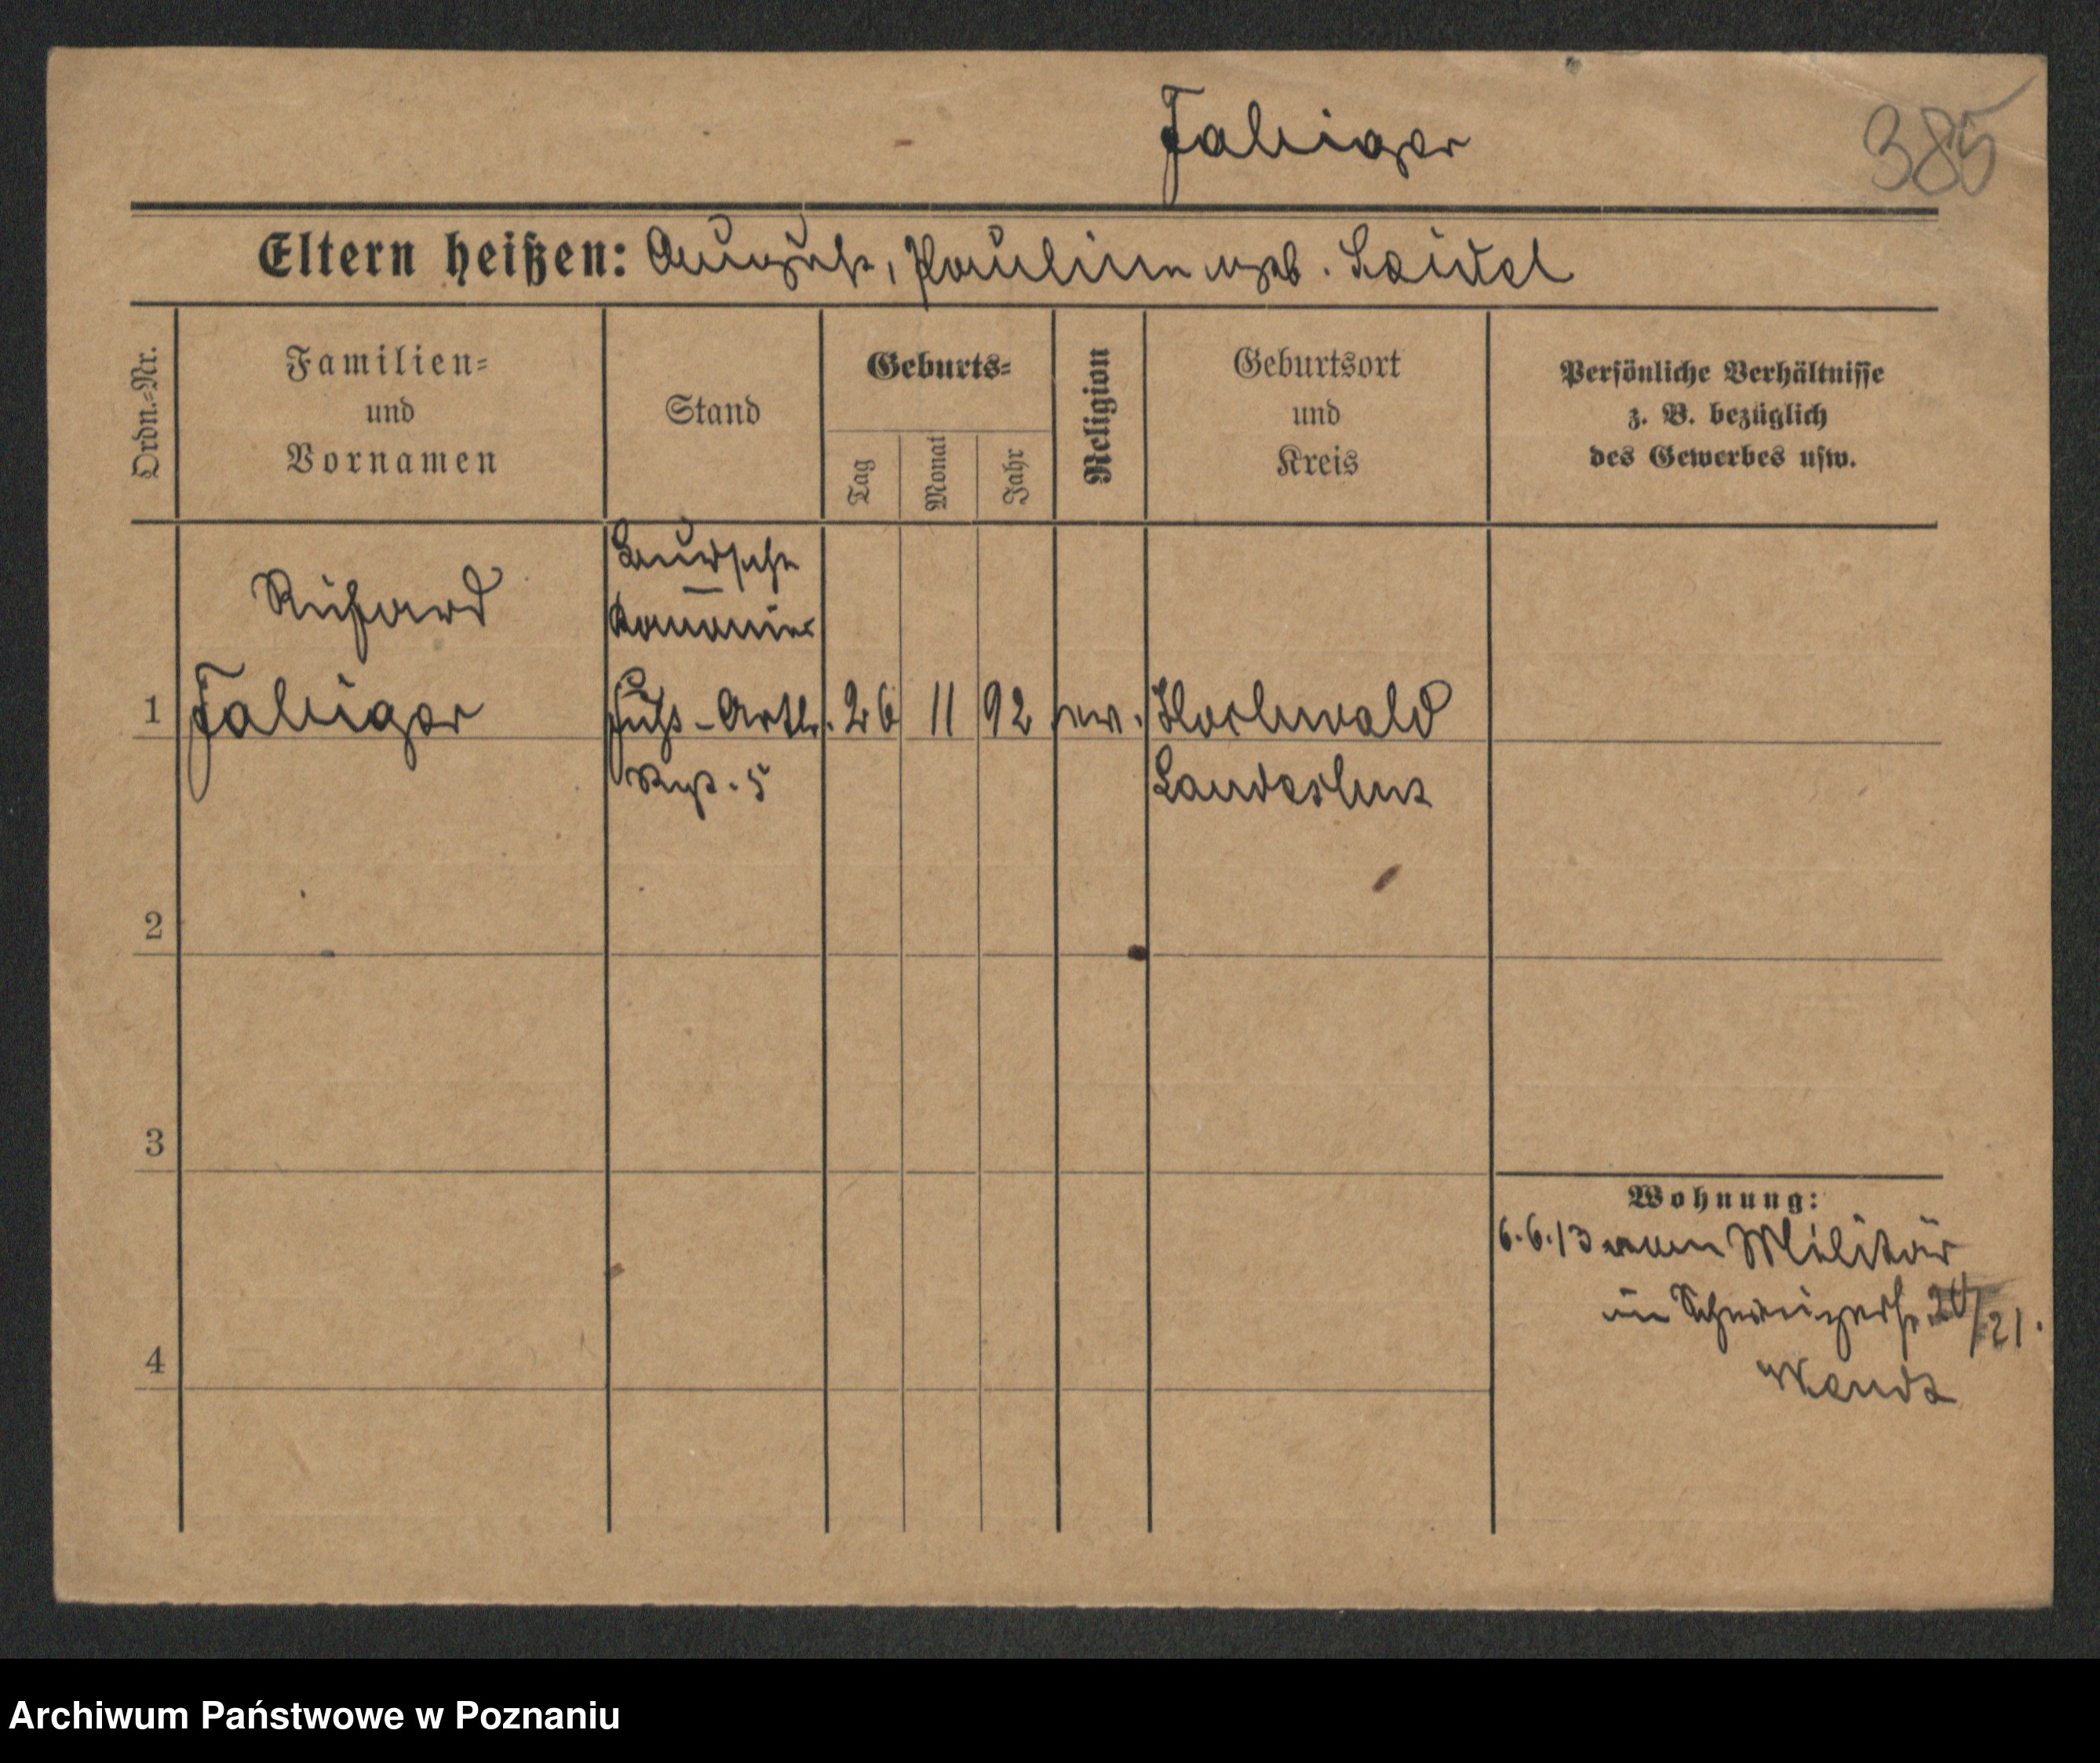 Fabiger
385
Eltern heißen: August, Pauline geb. Seidel
Ordn.-Nr.
Familien-
und
Vornamen
Stand
Geburts-
Tag
Monat
Jahr
Religion
Geburtsort
und
Kreis
Persönliche Verhältnisse
z. B. bezüglich
des Gewerbes usw.
1
Richard
Fabiger
Kanonier
Fuß-Artl.
Regt. 5
26
11
92
ev.
Hochwald
Landeshut
2
3
4
Wohnung:
6.6.13 vom Militär
in 20/21.
Wendt
Archiwum Państwowe w Poznaniu